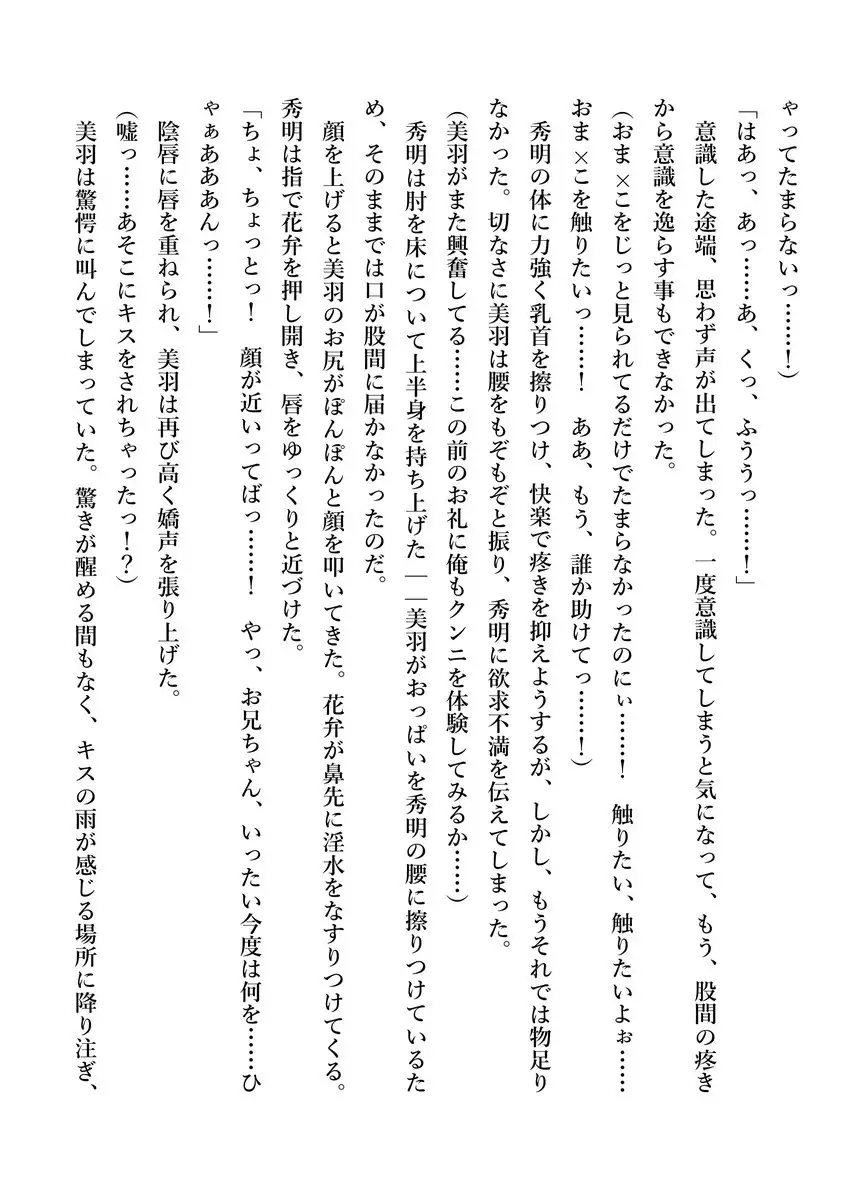 ゃってたまらないっ……！）
「はあっ、あっ……あ、くっ、ふううっ……！」
　意識した途端、思わず声が出てしまった。一度意識してしまうと気になって、もう、股間の疼き
から意識を逸らす事もできなかった。
（おま×こをじっと見られてるだけでたまらなかったのにぃ……！　触りたい、触りたいよぉ……
おま×こを触りたいっ……！　ああ、もう、誰か助けてっ……！）
　秀明の体に力強く乳首を擦りつけ、快楽で疼きを抑えようするが、しかし、もうそれでは物足り
なかった。切なさに美羽は腰をもぞもぞと振り、秀明に欲求不満を伝えてしまった。
（美羽がまた興奮してる……この前のお礼に俺もクンニを体験してみるか……）
　秀明は肘を床について上半身を持ち上げた――美羽がおっぱいを秀明の腰に擦りつけているた
め、そのままでは口が股間に届かなかったのだ。
　顔を上げると美羽のお尻がぽんぽんと顔を叩いてきた。花弁が鼻先に淫水をなすりつけてくる。
秀明は指で花弁を押し開き、唇をゆっくりと近づけた。
「ちょ、ちょっとっ！　顔が近いってばっ……！　やっ、お兄ちゃん、いったい今度は何を……ひ
ゃぁあああんっ……！」
　陰唇に唇を重ねられ、美羽は再び高く嬌声を張り上げた。
（嘘っ……あそこにキスをされちゃったっ！？）
　美羽は驚愕に叫んでしまっていた。驚きが醒める間もなく、キスの雨が感じる場所に降り注ぎ、